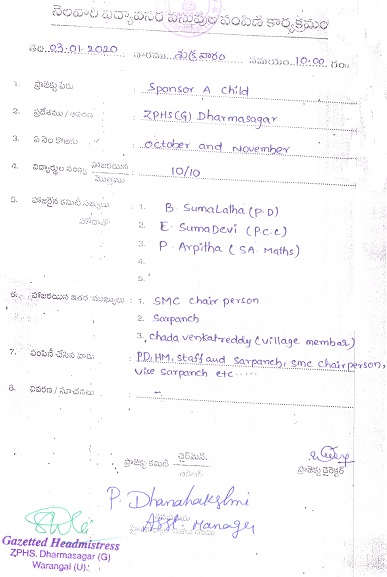 నెలవారి విద్యావసర వస్తువుల పంపిణీ కార్యక్రమం
తేది 03.01.2020 వారము శుక్రవారం సమయం 10:00 గం
1. ప్రాజెక్టు పేరు : Sponsor A Child
2. ప్రదేశము / : ZPHS(G) Dharmasagar
3. ఏ నెల కొరకు : October and November
4. విద్యార్థుల సంఖ్య హాజరయిన / మొత్తము : 10/10
5. హాజరైన కమిటీ సభ్యులు : 1. B. SumaLatha (P.D)
2. E. SumaDevi (P.C.C)
3. P. Arpitha (SA. Maths)
4.
5.
6. హాజరయిన ఇతర ముఖ్యులు : 1. SMC chair person
2. Sarpanch
3. chada venkatreddy (village membar)
7. పంపిణీ చేసిన వారు : P.D, HM, staff aud Sarpanch, smc chair person,
vise sarpanch etc.....
8. వివరణ / సూచనలు : -
ప్రాజెక్టు కమిటీ చైర్మెన్
ప్రాజెక్టు డైరెక్టర్
P. Dhanahakshmi
Asst. Manager
Gazetted Headmistress
ZPHS. Dharmasagar (G)
Warangal (U).